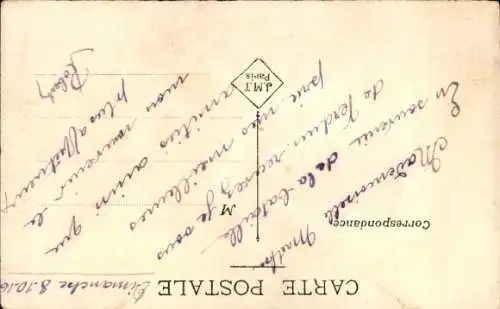 CARTE POSTALE
Correspondance
M
J.M.T
Paris
Dimanche 8.10.16
Mademoiselle
En souvenir de la bataille
de Verdun recevez je vous
prie mes meilleures
amitiés ainsi que
mon souvenir le
plus affectueux
Robert